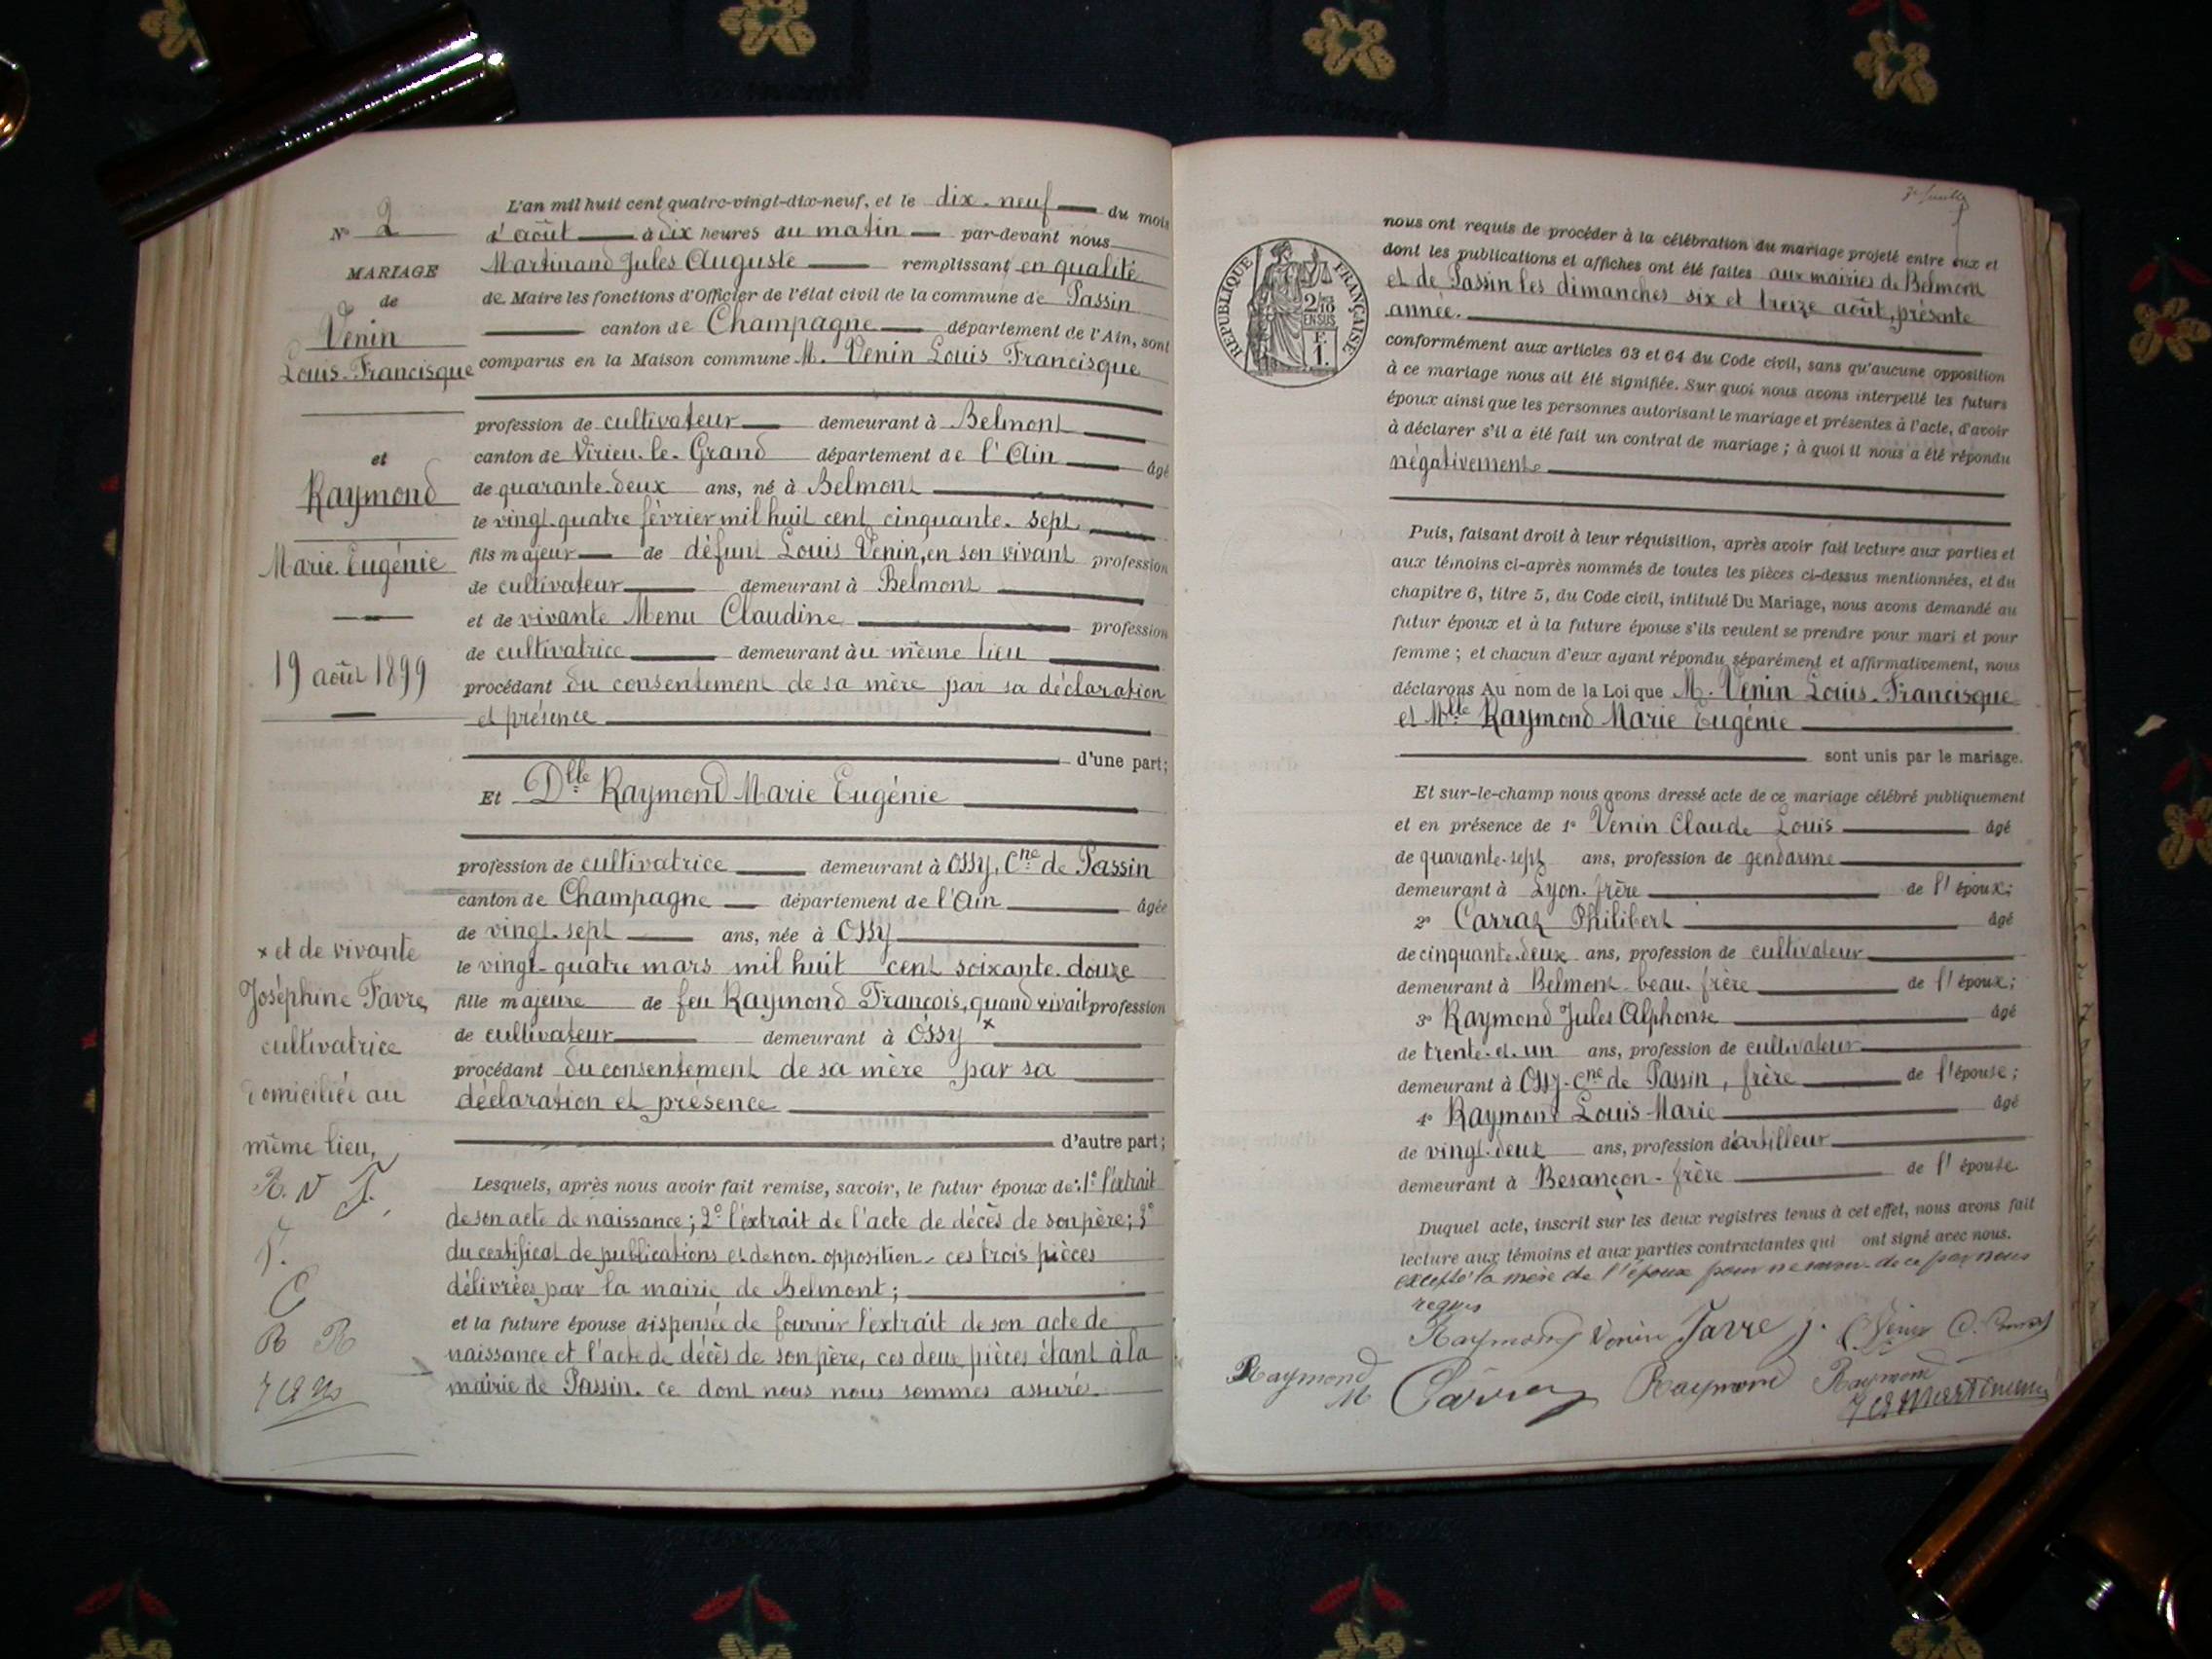 N° 2
MARIAGE
de
Venin
Louis-Francisque
et
Raymond
Marie Eugénie
19 août 1899
× et de vivante
Joséphine Favre,
cultivatrice
domiciliée au
même lieu,
R. V J.
F.
C
R R
L'an mil huit cent quatre-vingt-dix-neuf, et le dix-neuf du mois
d'août à dix heures du matin par-devant nous
Martinand Jules Auguste remplissant en qualité
de Maire les fonctions d'Officier de l'état civil de la commune de Passin
canton de Champagne département de l'Ain, sont
comparus en la Maison commune M. Venin Louis Francisque
profession de cultivateur demeurant à Belmont
canton de Virieu-le-Grand département de l'Ain âgé
de quarante-deux ans, né à Belmont
le vingt-quatre février mil huit cent cinquante-sept
fils majeur de défunt Louis Venin, en son vivant profession
de cultivateur demeurant à Belmont
et de vivante Menu Claudine profession
de cultivatrice demeurant àu même lieu
procédant du consentement de sa mère par sa déclaration
et présence
d'une part;
Et Dlle Raymond Marie Eugénie
profession de cultivatrice demeurant à Ossy, Cne de Passin
canton de Champagne département de l'Ain âgée
de vingt-sept ans, née à Ossy
le vingt-quatre mars mil huit cent soixante-douze
fille majeure de feu Raymond François, quand vivait profession
de cultivateur demeurant à Ossy ×
procédant du consentement de sa mère par sa
déclaration et présence
d'autre part;
Lesquels, après nous avoir fait remise, savoir, le futur époux de: 1° l'extrait
de son acte de naissance; 2° l'extrait de l'acte de décès de son père; 3°
du certificat de publications et de non-opposition, ces trois pièces
délivrées par la mairie de Belmont;
et la future épouse dispensée de fournir l'extrait de son acte de
naissance et l'acte de décès de son père, ces deux pièces étant à la
mairie de Passin. ce dont nous nous sommes assuré.
7e feuille
RÉPUBLIQUE FRANÇAISE
2/10
EN SUS
F.
1.
nous ont requis de procéder à la célébration du mariage projeté entre eux et
dont les publications et affiches ont été faites aux mairies de Belmont
et de Passin les dimanches six et treize août, présente
année.
conformément aux articles 63 et 64 du Code civil, sans qu'aucune opposition
à ce mariage nous ait été signifiée. Sur quoi nous avons interpellé les futurs
époux ainsi que les personnes autorisant le mariage et présentes à l'acte, d'avoir
à déclarer s'il a été fait un contrat de mariage; à quoi il nous a été répondu
négativement
Puis, faisant droit à leur réquisition, après avoir fait lecture aux parties et
aux témoins ci-après nommés de toutes les pièces ci-dessus mentionnées, et du
chapitre 6, titre 5, du Code civil, intitulé Du Mariage, nous avons demandé au
futur époux et à la future épouse s'ils veulent se prendre pour mari et pour
femme; et chacun d'eux ayant répondu séparément et affirmativement, nous
déclarons Au nom de la Loi que M. Venin Louis-Francisque
et Mlle Raymond Marie Eugénie
sont unis par le mariage.
Et sur-le-champ nous avons dressé acte de ce mariage célébré publiquement
et en présence de 1° Venin Claude Louis âgé
de quarante-sept ans, profession de gendarme
demeurant à Lyon. frère de l'époux;
2° Carraz Philibert âgé
de cinquante-deux ans, profession de cultivateur
demeurant à Belmont beau-frère de l'époux;
3° Raymond Jules Alphonse âgé
de trente-et-un ans, profession de cultivateur
demeurant à Ossy-Cne de Passin, frère de l'épouse;
4° Raymond Louis-Marie âgé
de vingt-deux ans, profession d'artilleur
demeurant à Besançon-frère de l'épouse.
Duquel acte, inscrit sur les deux registres tenus à cet effet, nous avons fait
lecture aux témoins et aux parties contractantes qui ont signé avec nous.
excepté la mère de l'époux pour ne savoir de ce par nous
requis
Raymond Venin Favre j. C. Carraz
Raymond M Carraz Raymond Raymond
J A Martinand